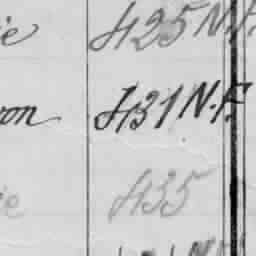 ie 425 N.F.
on 431 N.F.
ie 435